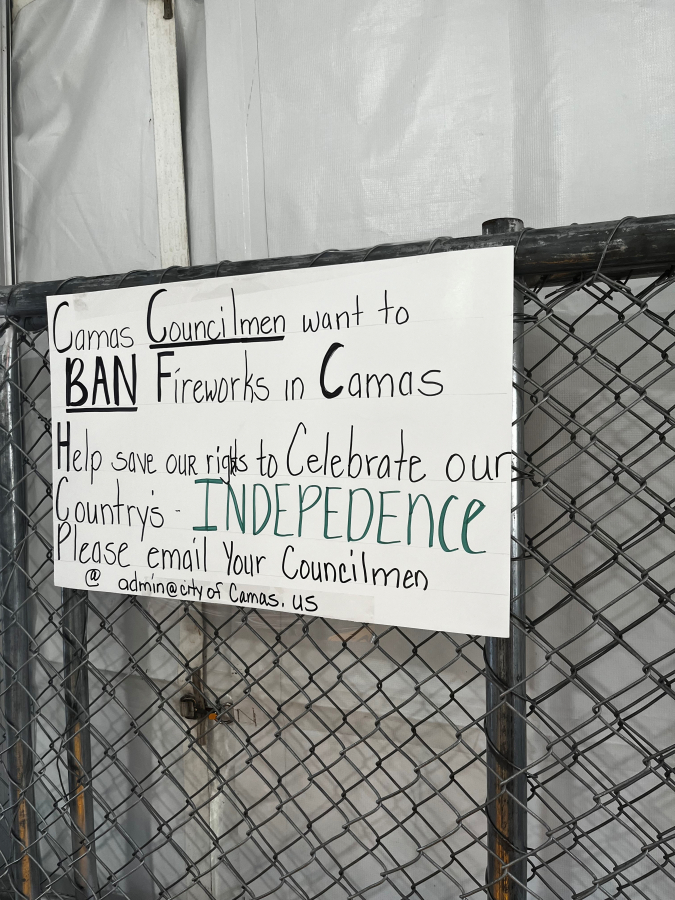 Camas Councilmen want to
BAN Fireworks in Camas
Help save our rights to Celebrate our
Country's - INDEPEDENce
Please email Your Councilmen
@ admin@cityofCamas.us